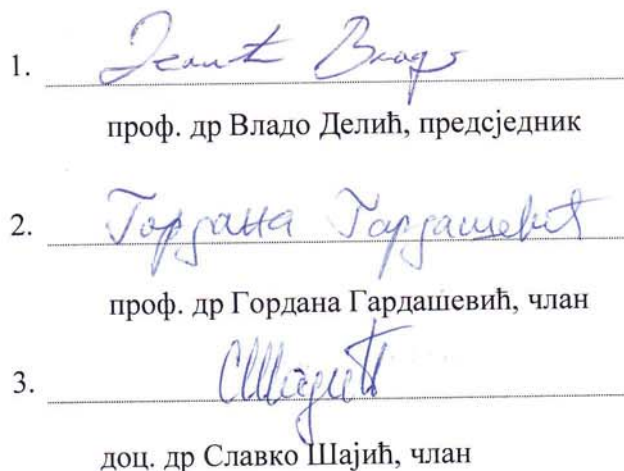 1. Делић Владо
проф. др Владо Делић, предсједник
2. Гордана Гардашевић
проф. др Гордана Гардашевић, члан
3. СШајић
доц. др Славко Шајић, члан